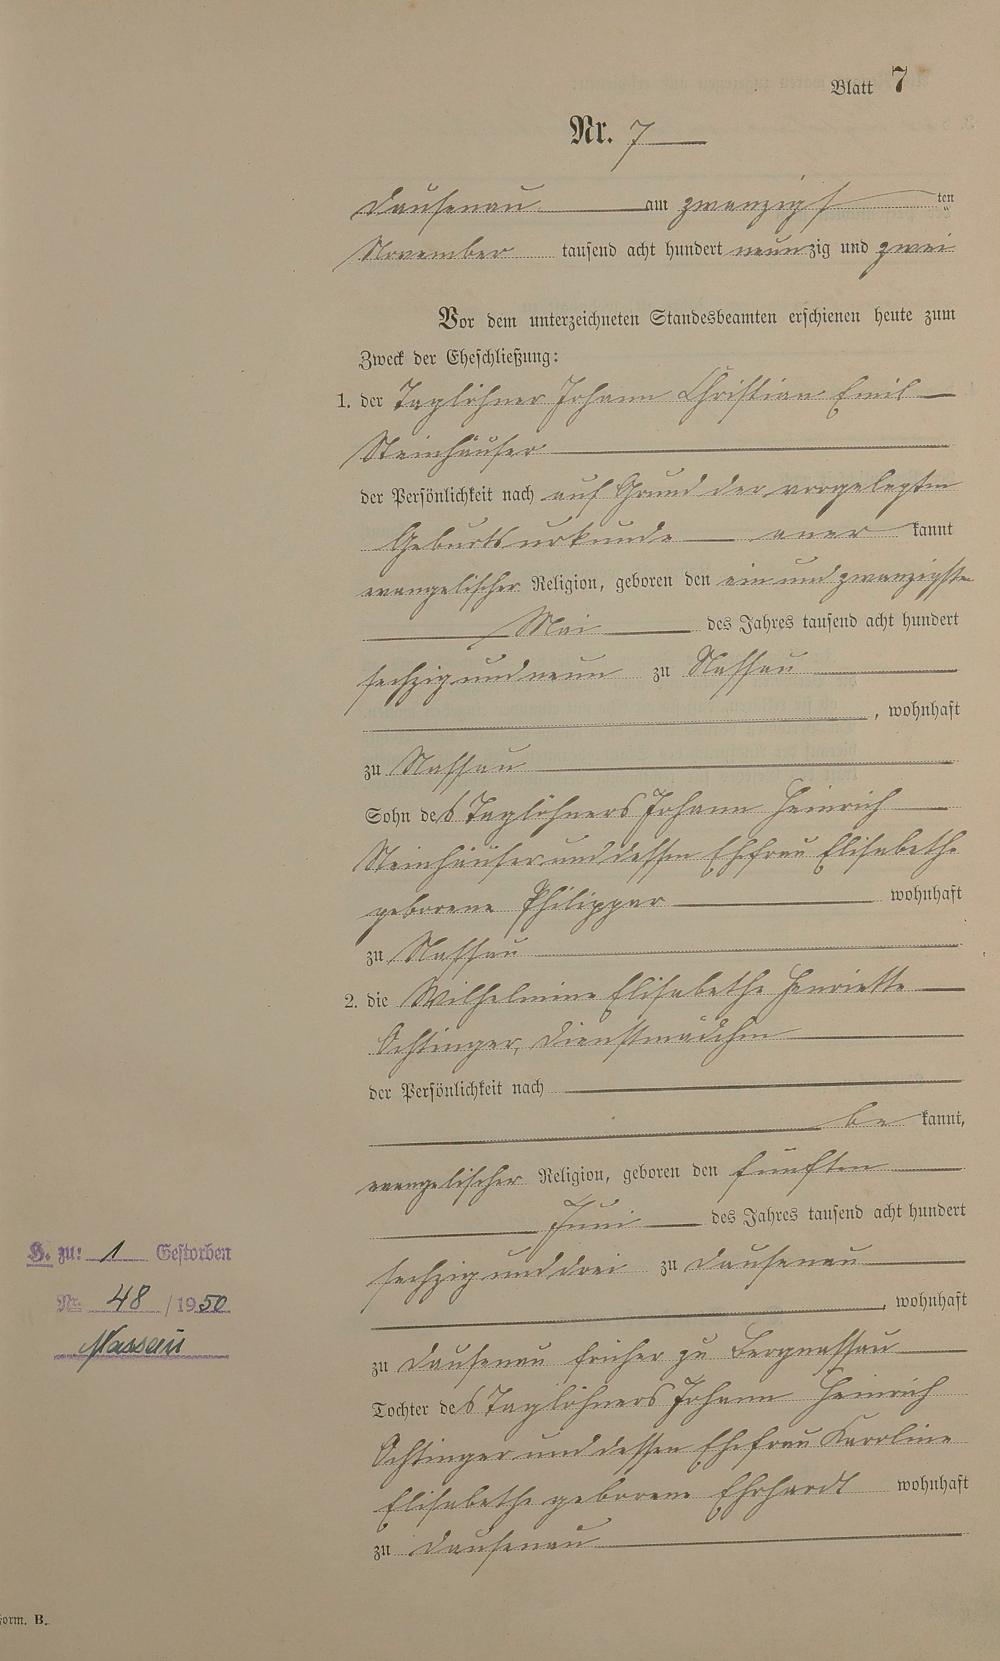 Blatt 7
Nr. 7
Dausenau am zwanzigsten
November tausend acht hundert neunzig und zwei
Vor dem unterzeichneten Standesbeamten erschienen heute zum
Zweck der Eheschließung:
1. der Taglöhner Johann Christian Emil
Steinhäuser
der Persönlichkeit nach auf Grund der vorgelegten
Geburtsurkunde anerkannt
evangelischer Religion, geboren den ein und zwanzigsten
Mai des Jahres tausend acht hundert
sechzig und neun zu Nassau
, wohnhaft
zu Nassau
Sohn des Taglöhners Johann Heinrich
Steinhäuser und dessen Ehefrau Elisabethe
geborene Philippar wohnhaft
zu Nassau
2. die Wilhelmine Elisabethe Henriette
Dienstmädchen
der Persönlichkeit nach
bekannt,
evangelischer Religion, geboren den fünften
Juni des Jahres tausend acht hundert
sechzig und drei zu Dausenau
, wohnhaft
zu Dausenau früher zu Bergnassau
Tochter des Taglöhners Johann Heinrich
und dessen Ehefrau Karoline
Elisabethe geborene Ehrhardt wohnhaft
zu Dausenau
H. zu: 1 Gestorben
Nr. 48 / 1950
Nassau
Form. B.